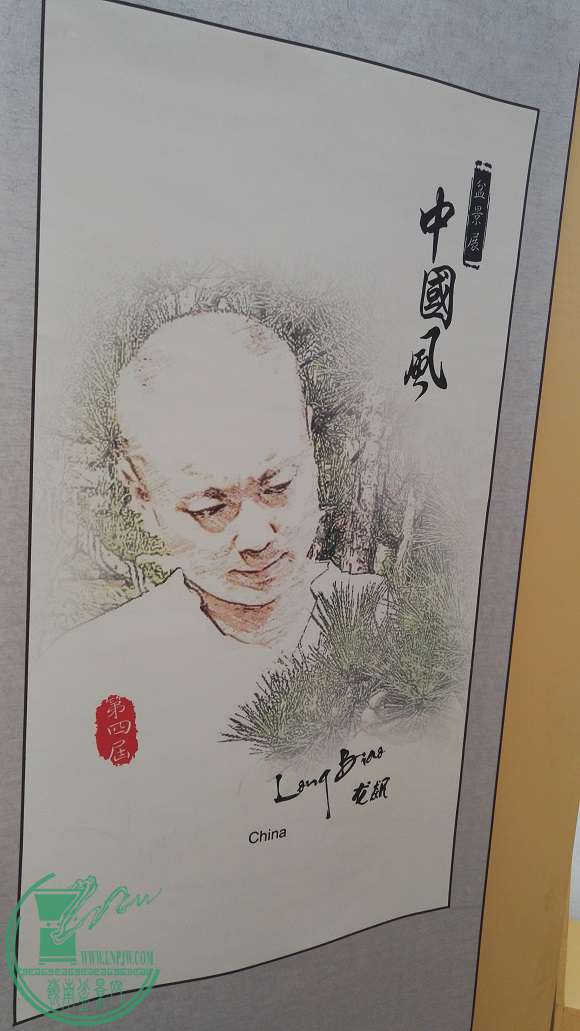 盆景展
中國風
第四屆
Long Biao
龙飙
China
WWW.LNPJW.COM
嶺南盆景网